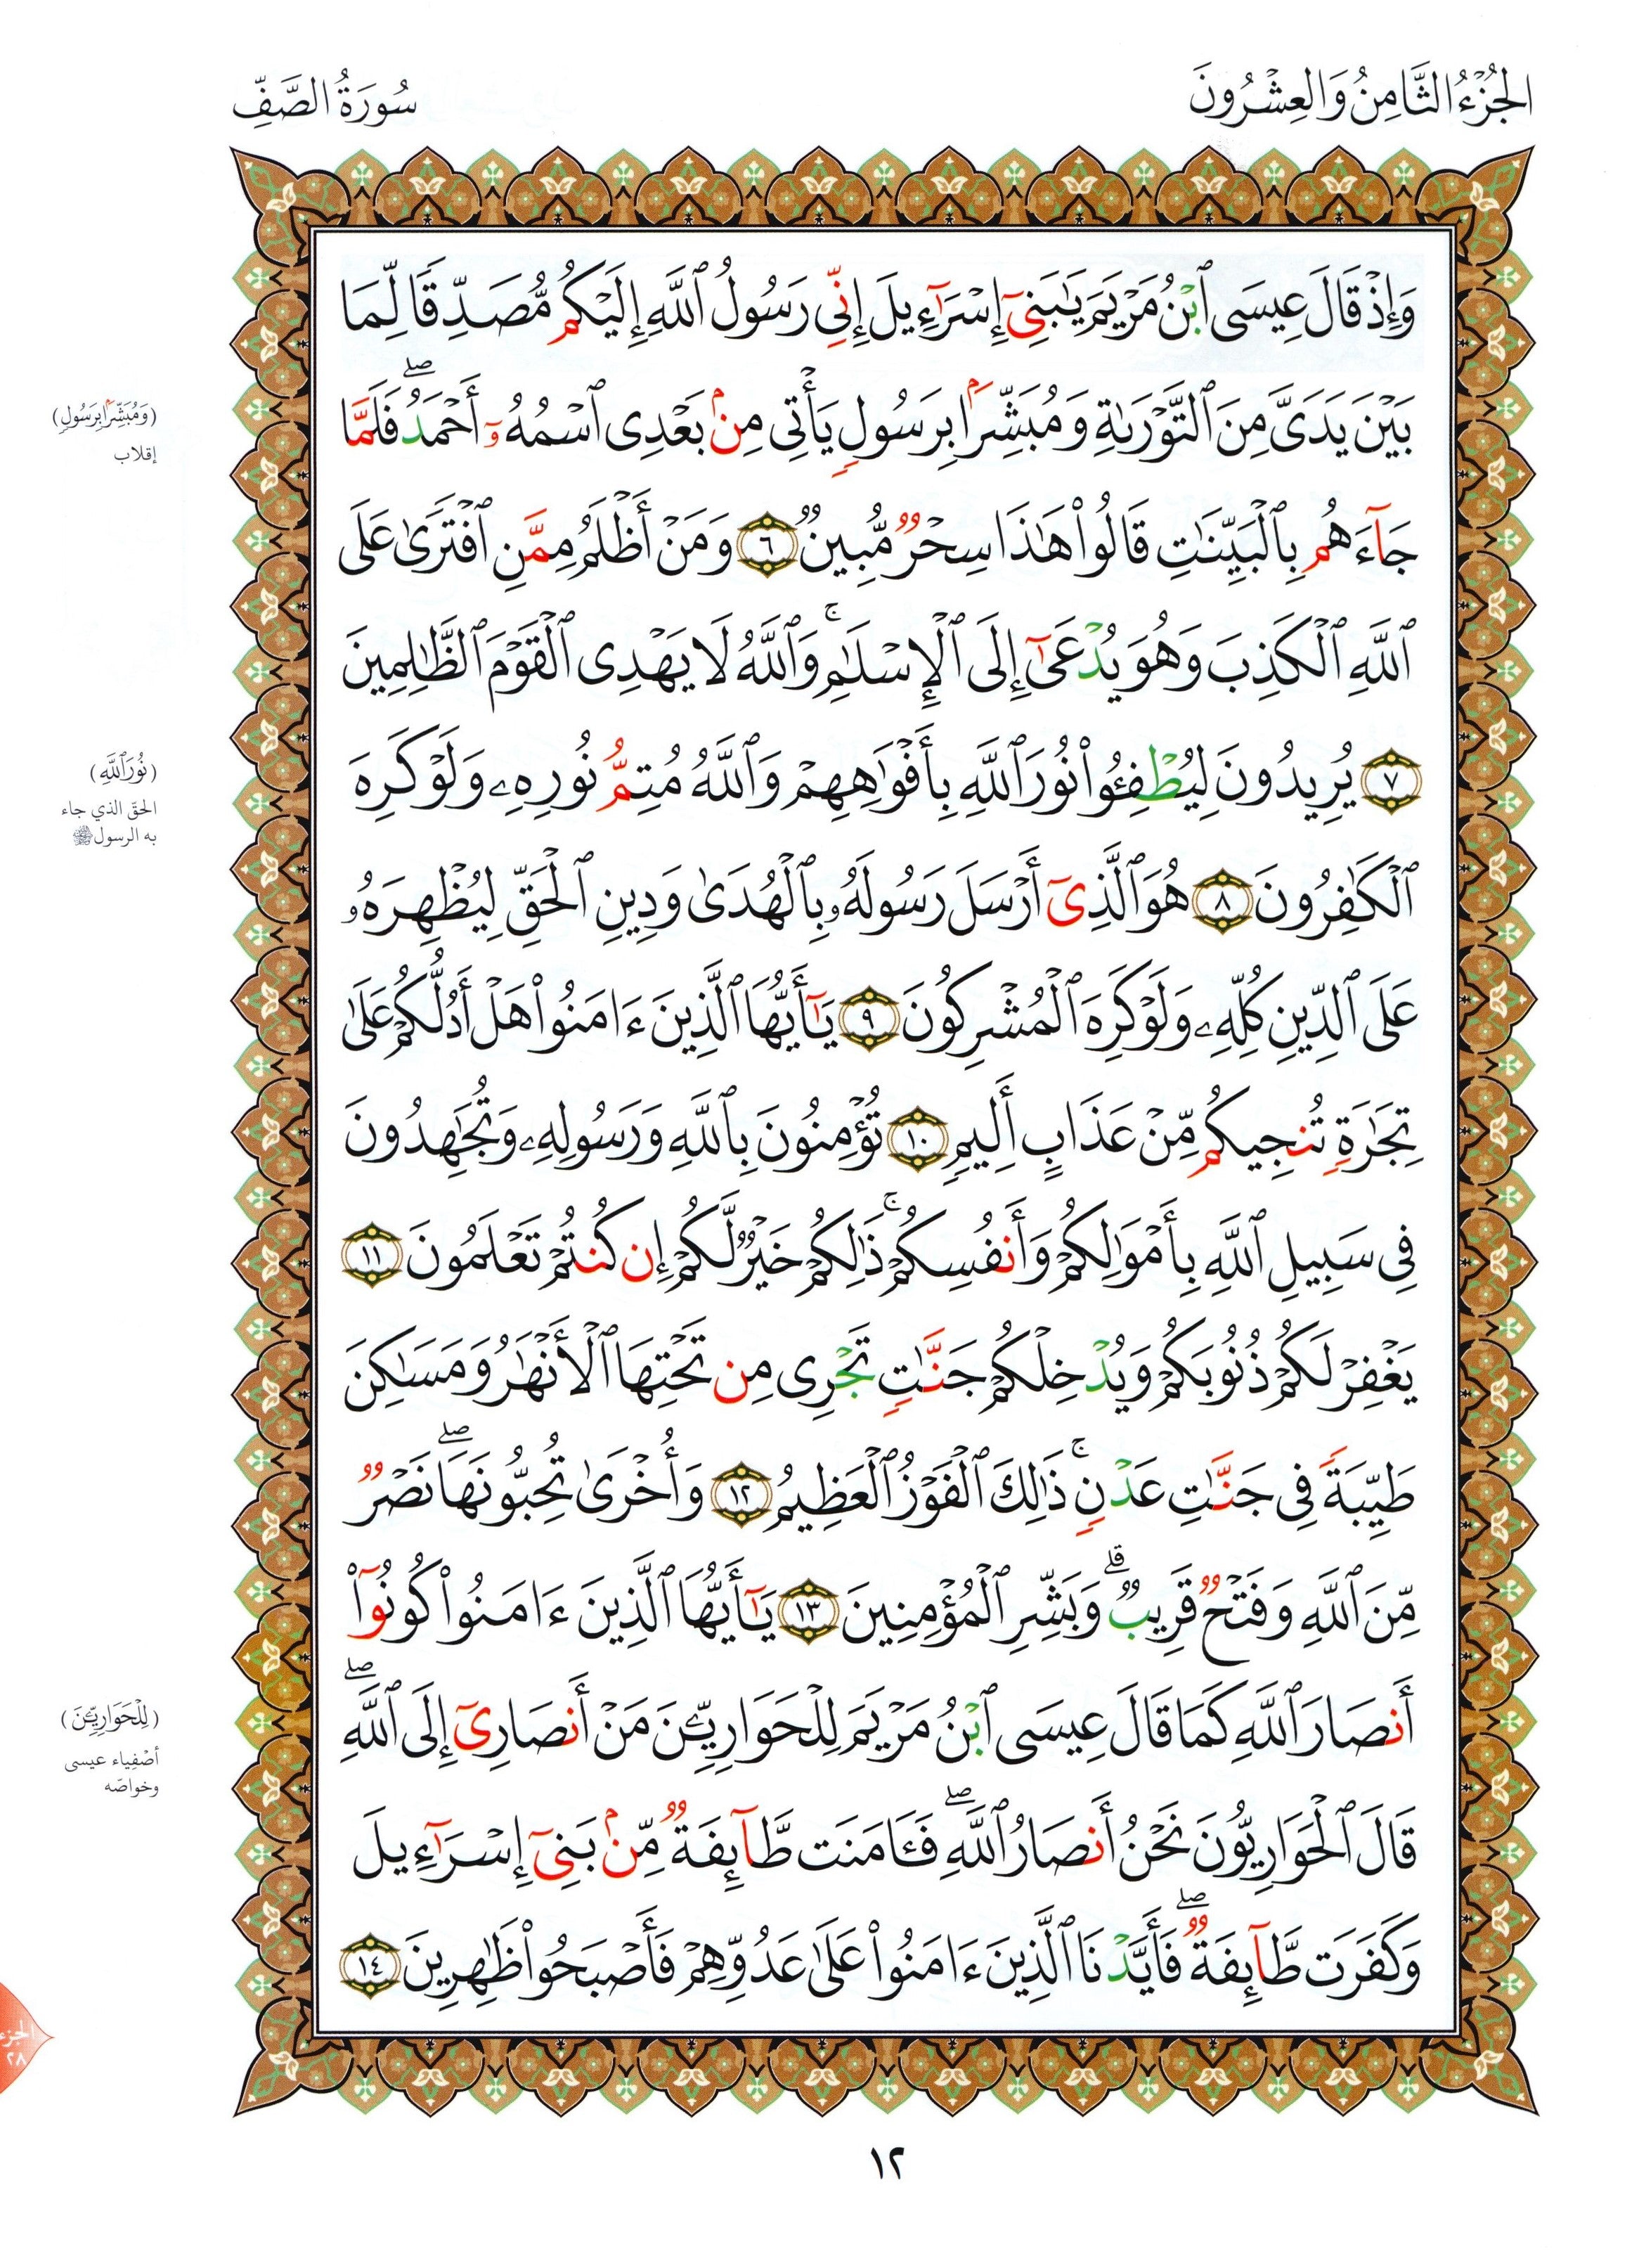 الجُزْءُ الثَّامِنُ وَالعِشْرُونَ
سُورَةُ الصَّفِّ
وَإِذْ قَالَ عِيسَى ٱبْنُ مَرْيَمَ يَـٰبَنِىٓ إِسْرَٰٓءِيلَ إِنِّى رَسُولُ ٱللَّهِ إِلَيْكُم مُّصَدِّقًا لِّمَا
بَيْنَ يَدَىَّ مِنَ ٱلتَّوْرَىٰةِ وَمُبَشِّرًۢا بِرَسُولٍ يَأْتِى مِنۢ بَعْدِى ٱسْمُهُۥٓ أَحْمَدُ ۖ فَلَمَّا
جَآءَهُم بِٱلْبَيِّنَـٰتِ قَالُوا۟ هَـٰذَا سِحْرٌ مُّبِينٌ ٦ وَمَنْ أَظْلَمُ مِمَّنِ ٱفْتَرَىٰ عَلَى
ٱللَّهِ ٱلْكَذِبَ وَهُوَ يُدْعَىٰٓ إِلَى ٱلْإِسْلَـٰمِ ۚ وَٱللَّهُ لَا يَهْدِى ٱلْقَوْمَ ٱلظَّـٰلِمِينَ
٧ يُرِيدُونَ لِيُطْفِـُٔوا۟ نُورَ ٱللَّهِ بِأَفْوَٰهِهِمْ وَٱللَّهُ مُتِمُّ نُورِهِۦ وَلَوْ كَرِهَ
ٱلْكَـٰفِرُونَ ٨ هُوَ ٱلَّذِىٓ أَرْسَلَ رَسُولَهُۥ بِٱلْهُدَىٰ وَدِينِ ٱلْحَقِّ لِيُظْهِرَهُۥ
عَلَى ٱلدِّينِ كُلِّهِۦ وَلَوْ كَرِهَ ٱلْمُشْرِكُونَ ٩ يَـٰٓأَيُّهَا ٱلَّذِينَ ءَامَنُوا۟ هَلْ أَدُلُّكُمْ عَلَىٰ
تِجَـٰرَةٍ تُنجِيكُم مِّنْ عَذَابٍ أَلِيمٍ ١٠ تُؤْمِنُونَ بِٱللَّهِ وَرَسُولِهِۦ وَتُجَـٰهِدُونَ
فِى سَبِيلِ ٱللَّهِ بِأَمْوَٰلِكُمْ وَأَنفُسِكُمْ ۚ ذَٰلِكُمْ خَيْرٌ لَّكُمْ إِن كُنتُمْ تَعْلَمُونَ ١١
يَغْفِرْ لَكُمْ ذُنُوبَكُمْ وَيُدْخِلْكُمْ جَنَّـٰتٍ تَجْرِى مِن تَحْتِهَا ٱلْأَنْهَـٰرُ وَمَسَـٰكِنَ
طَيِّبَةً فِى جَنَّـٰتِ عَدْنٍ ۚ ذَٰلِكَ ٱلْفَوْزُ ٱلْعَظِيمُ ١٢ وَأُخْرَىٰ تُحِبُّونَهَا ۖ نَصْرٌ
مِّنَ ٱللَّهِ وَفَتْحٌ قَرِيبٌ ۗ وَبَشِّرِ ٱلْمُؤْمِنِينَ ١٣ يَـٰٓأَيُّهَا ٱلَّذِينَ ءَامَنُوا۟ كُونُوٓا۟
أَنصَارَ ٱللَّهِ كَمَا قَالَ عِيسَى ٱبْنُ مَرْيَمَ لِلْحَوَارِيِّـۧنَ مَنْ أَنصَارِىٓ إِلَى ٱللَّهِ ۖ
قَالَ ٱلْحَوَارِيُّونَ نَحْنُ أَنصَارُ ٱللَّهِ ۖ فَـَٔامَنَت طَّآئِفَةٌ مِّنۢ بَنِىٓ إِسْرَٰٓءِيلَ
وَكَفَرَت طَّآئِفَةٌ ۖ فَأَيَّدْنَا ٱلَّذِينَ ءَامَنُوا۟ عَلَىٰ عَدُوِّهِمْ فَأَصْبَحُوا۟ ظَـٰهِرِينَ ١٤
(وَمُبَشِّرًۢا بِرَسُولٍ)
إقلاب
(نُورَ ٱللَّهِ)
الحقّ الذي جاء
به الرسول ﷺ
(لِلْحَوَارِيِّـۧنَ)
أصْفِياء عيسى
وخواصّه
الجزء
٢٨
١٢